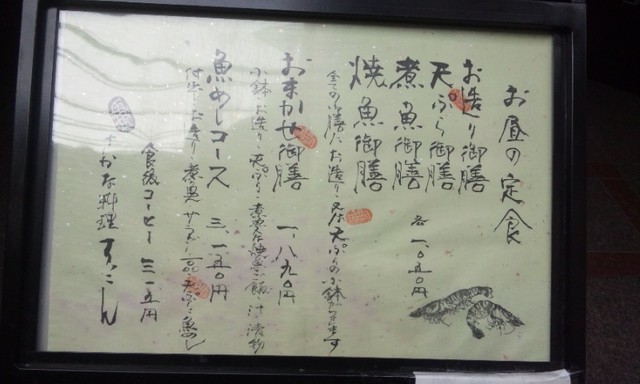 お昼の定食
お造り御膳
天ぷら御膳
煮魚御膳 各一、〇五〇円
焼魚御膳
全ての御膳に、お造り又は天ぷらの小鉢が付きます
おまかせ御膳 一、八九〇円
小鉢、お造り、天ぷら、煮魚又は 御飯、汁、漬物
魚めしコース 三、一五〇円
付出し、お造り、煮魚、サラダ、一品、天ぷら、魚めし
食後コーヒー 三一五円
さかな料理